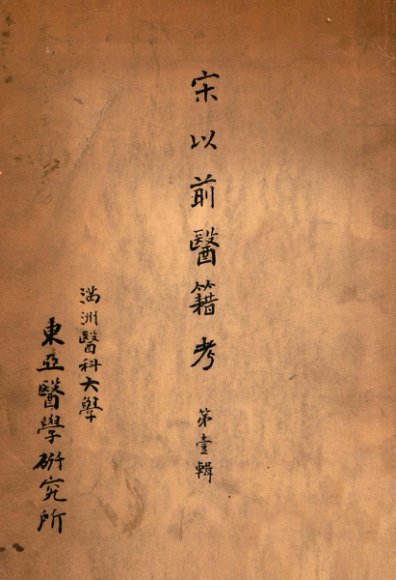 宋以前醫籍考 第壹輯
満洲醫科大學
東亞醫學研究所